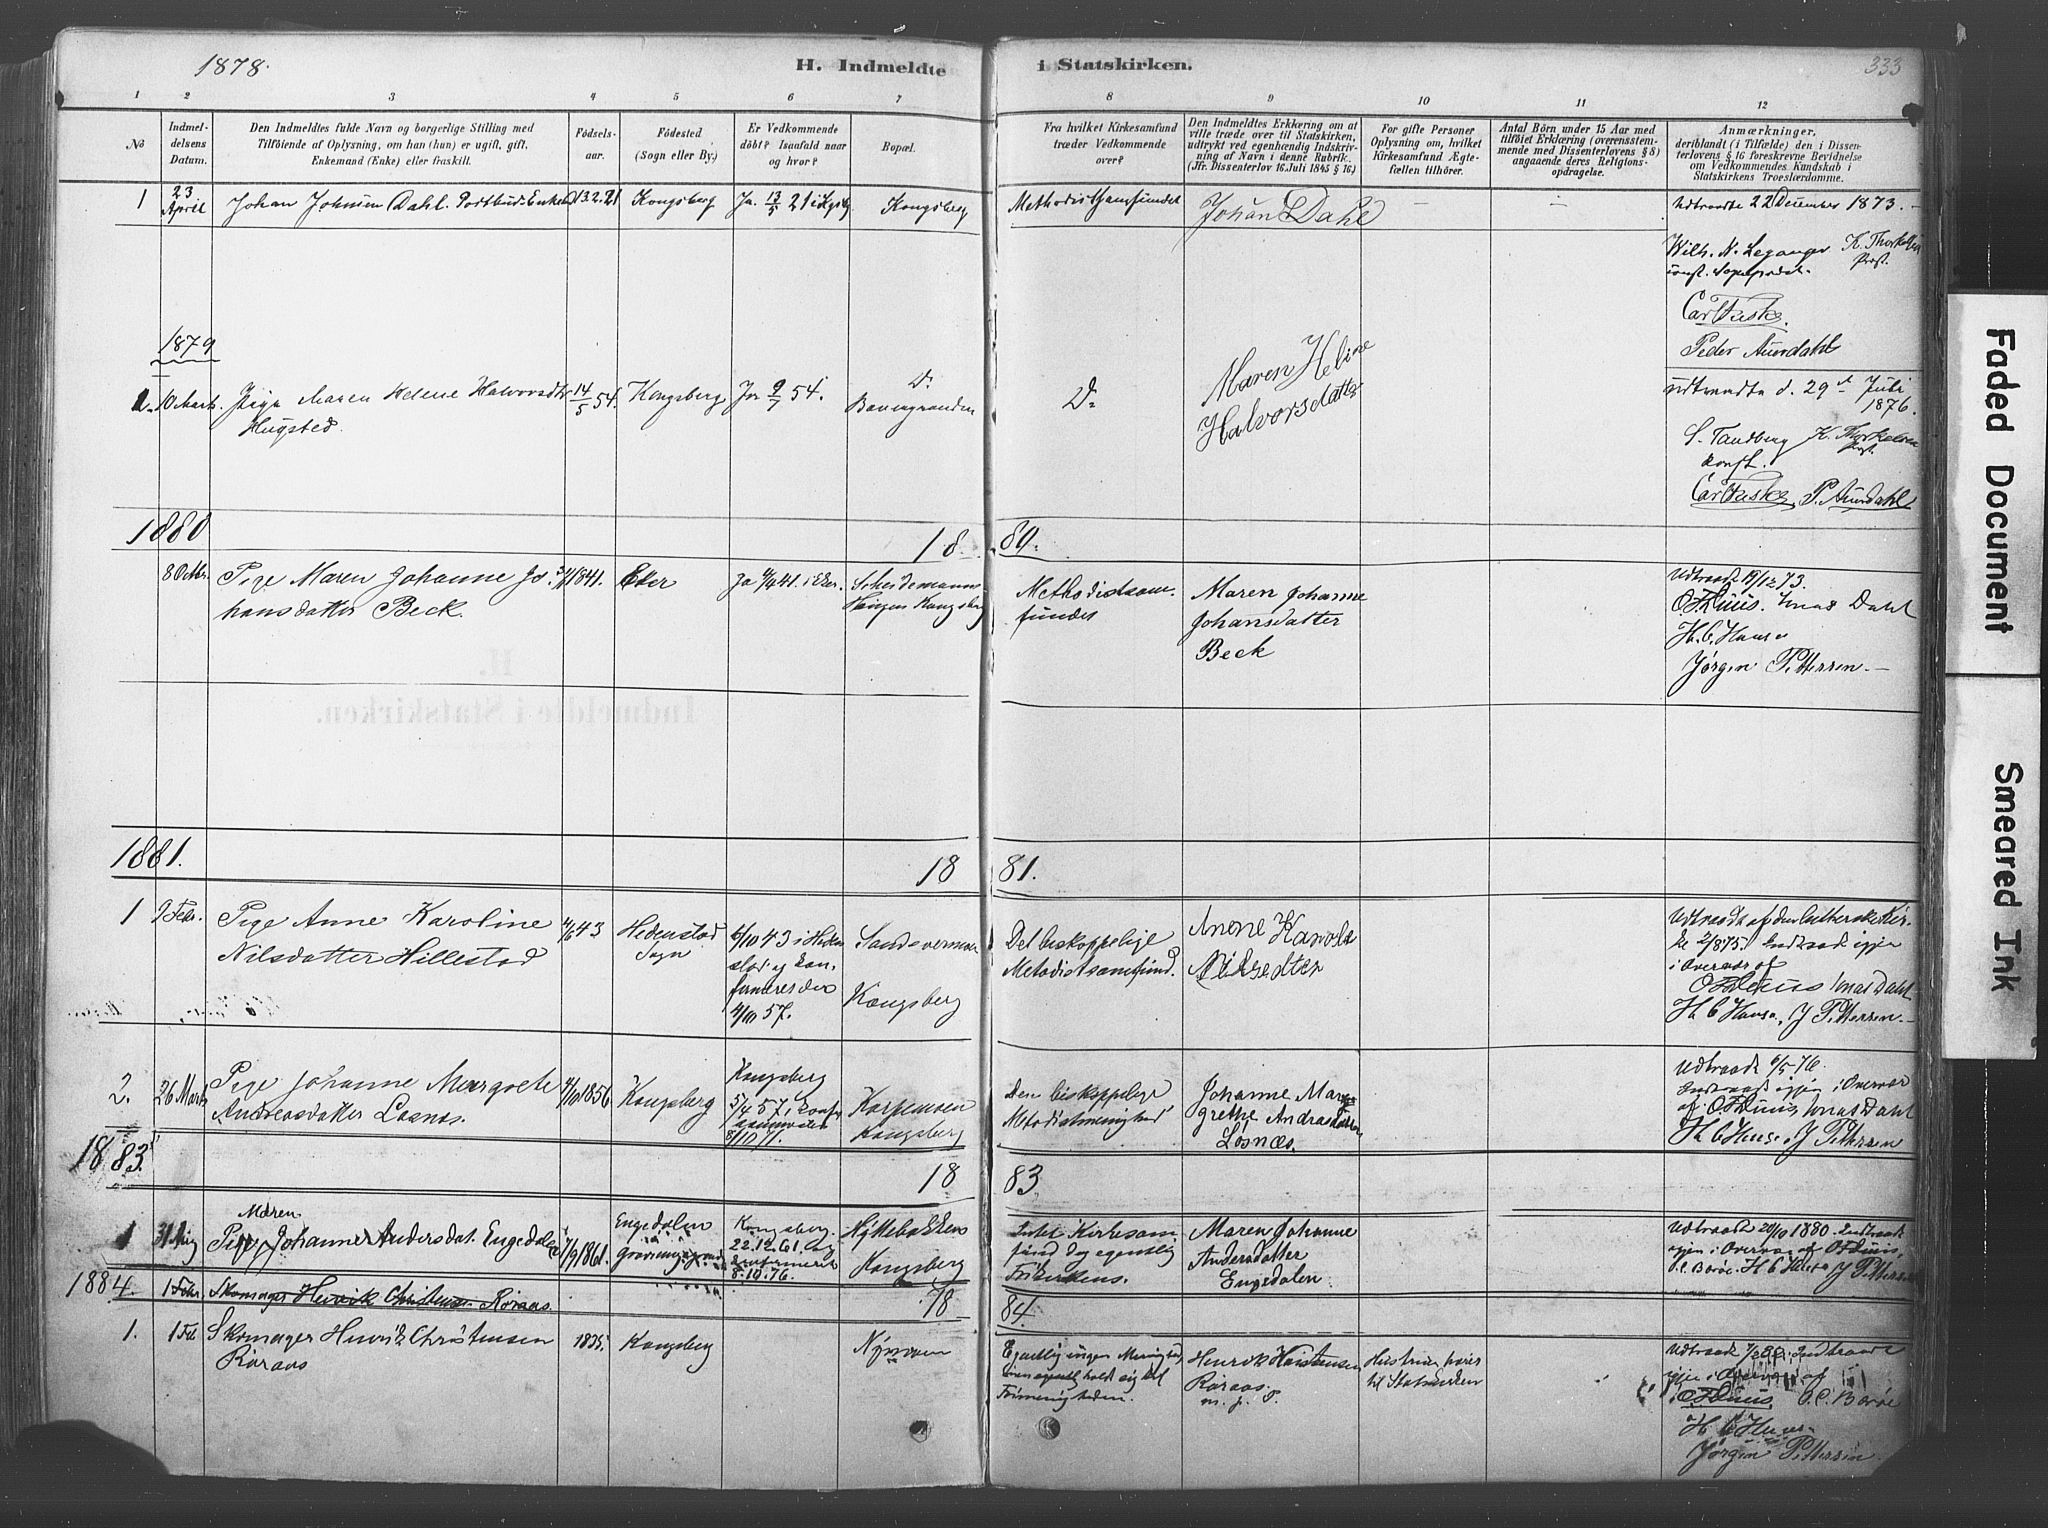 1878.
H. Indmeldte
i Statskirken.
333
1 2 3 4 5 6 7
8 9 10 11 12
No
Indmel-
delsens
Datum.
Den Indmeldtes fulde Navn og borgerlige Stilling med
Tilföiende af Oplysning, om han (hun) er ugift, gift,
Enkemand (Enke) eller fraskilt.
Födsels-
aar.
Födested
(Sogn eller By.)
Er Vedkommende
döbt? Isaafald naar
og hvor?
Bopæl.
Fra hvilket Kirkesamfund
træder Vedkommende
over?
Den Indmeldtes Erklæring om at
ville træde over til Statskirken,
udtrykt ved egenhændig Indskriv-
ning af Navn i denne Rubrik.
(Jfr. Dissenterlov 16. Juli 1845 § 16.)
For gifte Personer
Oplysning om, hvilket
Kirkesamfund Ægte-
fællen tilhörer.
Antal Börn under 15 Aar med
tilföiet Erklæring (overensstem-
mende med Dissenterlovens § 8)
angaaende deres Religions-
opdragelse.
Anmærkninger,
deriblandt (i Tilfælde) den i Dissen-
terlovens § 16 foreskrevne Bevidnelse
om Vedkommendes Kundskab i
Statskirkens Troeslærdomme.
1 23 April Johan Johnsen Dahl. Postbud. Enkem. 13.2.21 Kongsberg Ja. 13/5 21 i Kgsbg Kongsberg
Methodistsamfundet Johan Dahl — — Udtraadte 22 December 1873. —
Wilh. N. Leganger K. Thorkelsen
const. Sogneprest. Prost.
Carl Fuske.
Peder Aurdahl
1879
2. 10 Marts. Pige Maren Helene Halvorsdtr 14/5 54. Kongsberg Ja 9/7 54. Do
Hugsted.
Do Maren Heline
Halvorsdatter
udtraadte d. 29de Juli
1876.
S. Tandberg K. Thorkelsen
konst. Prost.
Carl Fuske, P. Aurdahl
1880 18 80.
8 Octbr. Pige Maren Johanne Jo- 1841. Eker Ja 41. i Eker.
hansdatter Beck. Kongsberg
Methodistsam-
fundet
Maren Johanne
Johansdatter
Beck
Udtraadt 19/12 73.
O. F. Duus. Jonas Dahl
H. C. Hansen
Jørgen Pettersen —
1881. 18 81.
1 9 Febr. Pige Anne Karoline 43 Hedenstad 6/10 43 i Heden
Nilsdatter Hillestad Sogn stad og kon-
firmeres der
4/10 57.
Sandsværmoen
Kongsberg
Det biskoppelige
Metodistsamfund.
Anne Karole
Nilsedter
Udtraadt af den lutherske Kir-
ke 2/8 75. Indtraadt igjen
i Overvær af
O F Duus Jonas Dahl
H. C Hansen, J Pettersen. —
2. 26 Marts Pige Johanne Margrete 4/10 1856 Kongsberg Kongsberg
Andreasdatter Losnæs. 5/4 57, konfir
8/10 71.
Karpemoen
Kongsberg
Den biskoppelige
Metodistmenighed
Johanne Mar-
grethe Andrasdatter
Losnæs.
Udtraadt 6/5 76.
Indtraadt igjen i Overvær
af. O F Duus, Jonas Dahl
H. C Hansen J Pettersen
1883. 18 83
1 31 Aug Pige Maren Johanne Andersdat. Engedalen 7/9 1861. Engedalen Kongsberg Hyttebakken
22.12.61. Og
konfirmeret
8.10.76.
Kongsberg
Intet Kirkesam
fund dog egentlig
Frikirkens.
Maren Johanne
Andersdatter
Engedalen
Udtraadt 20/10 1880. Indtraadt
igjen i Overvær af O F Duus,
O. C. Borøe. H C Hansen J Pettersen
1884. 18 84.
1 Febr. Skomager Henrik Christensen Røraas.
1. 1 Feb Skomager Henrik Christensen 1835 Kongsberg Nymoen
Røraas
Egentlig ingen Menighed,
Frimenigheden.
Henrik Kristensen
Røraas.
m. p. P.
Hustruen hører
til Statskirken
Udtraadt 80. Indtraadt
igjen i Overvær af
O F Duus. O. C. Borøe
H C Hansen
Jørgen Pettersen.
Faded Document
Smeared Ink